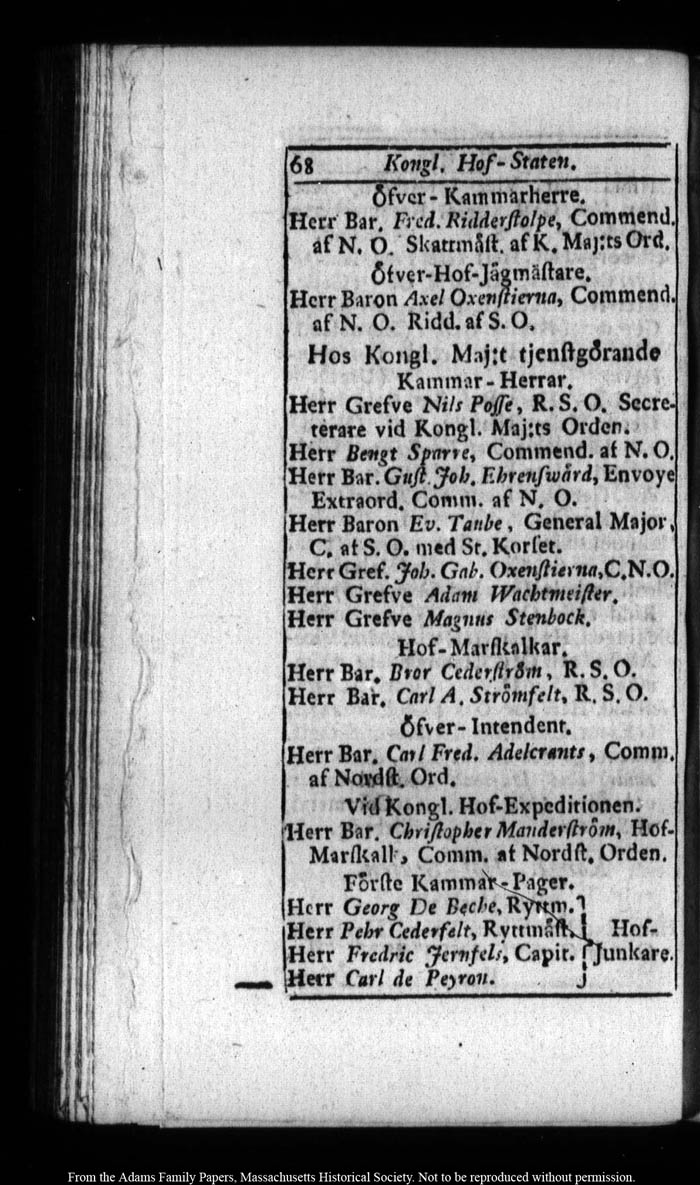 68 Kongl. Hof-Staten.
Öfver-Kammarherre.
Herr Bar. Fred. Ridderſtolpe, Commend.
af N. O. Skattmåſt. af K. Maj:ts Ord.
Öfver-Hof-Jägmäſtare.
Herr Baron Axel Oxenſtierna, Commend.
af N. O. Ridd. af S. O.
Hos Kongl. Maj:t tjenſtgörande
Kammar-Herrar.
Herr Grefve Nils Poſſe, R. S. O. Secre-
terare vid Kongl. Maj:ts Orden.
Herr Bengt Sparre, Commend. af N. O.
Herr Bar. Guſt. Joh. Ehrenſwärd, Envoye
Extraord. Comm. af N. O.
Herr Baron Ev. Taube, General Major,
C. af S. O. med St. Korſet.
Herr Gref. Joh. Gab. Oxenſtierna, C. N. O.
Herr Grefve Adam Wachtmeiſter.
Herr Grefve Magnus Stenbock.
Hof-Marſkalkar.
Herr Bar. Bror Cederſtröm, R. S. O.
Herr Bar. Carl A. Strömfelt, R. S. O.
Öfver-Intendent.
Herr Bar. Carl Fred. Adelcrants, Comm.
af Nordſt. Ord.
Vid Kongl. Hof-Expeditionen.
Herr Bar. Chriſtopher Manderſtröm, Hof-
Marſkalk, Comm. af Nordſt. Orden.
Förſte Kammar-Pager.
Herr Georg De Beche, Ryttm.
Herr Pehr Cederfelt, Ryttmäſt. Hof-
Herr Fredric Jernfels, Capit. Junkare.
Herr Carl de Peyron.
From the Adams Family Papers, Massachusetts Historical Society. Not to be reproduced without permission.